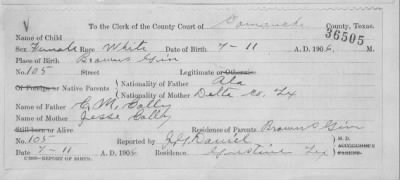 V
To the Clerk of the County Court of Comanche County, Texas.
36505
Name of Child
Sex Female Race White Date of Birth 7-11 A. D. 1906. M.
Place of Birth Browns Gin
No. 105 Street Legitimate or Otherwise
Of Foreign or Native Parents Nationality of Father Ala
Nationality of Mother Delta Co. Tex
Name of Father G. M. Colby
Name of Mother Jesse Colby
Still born or Alive Residence of Parents Browns Gin
No. 105 Reported by Daniel M. D.
Date 7-11 A. D. 1906 Residence Gustine Tex
REPORT OF BIRTH.